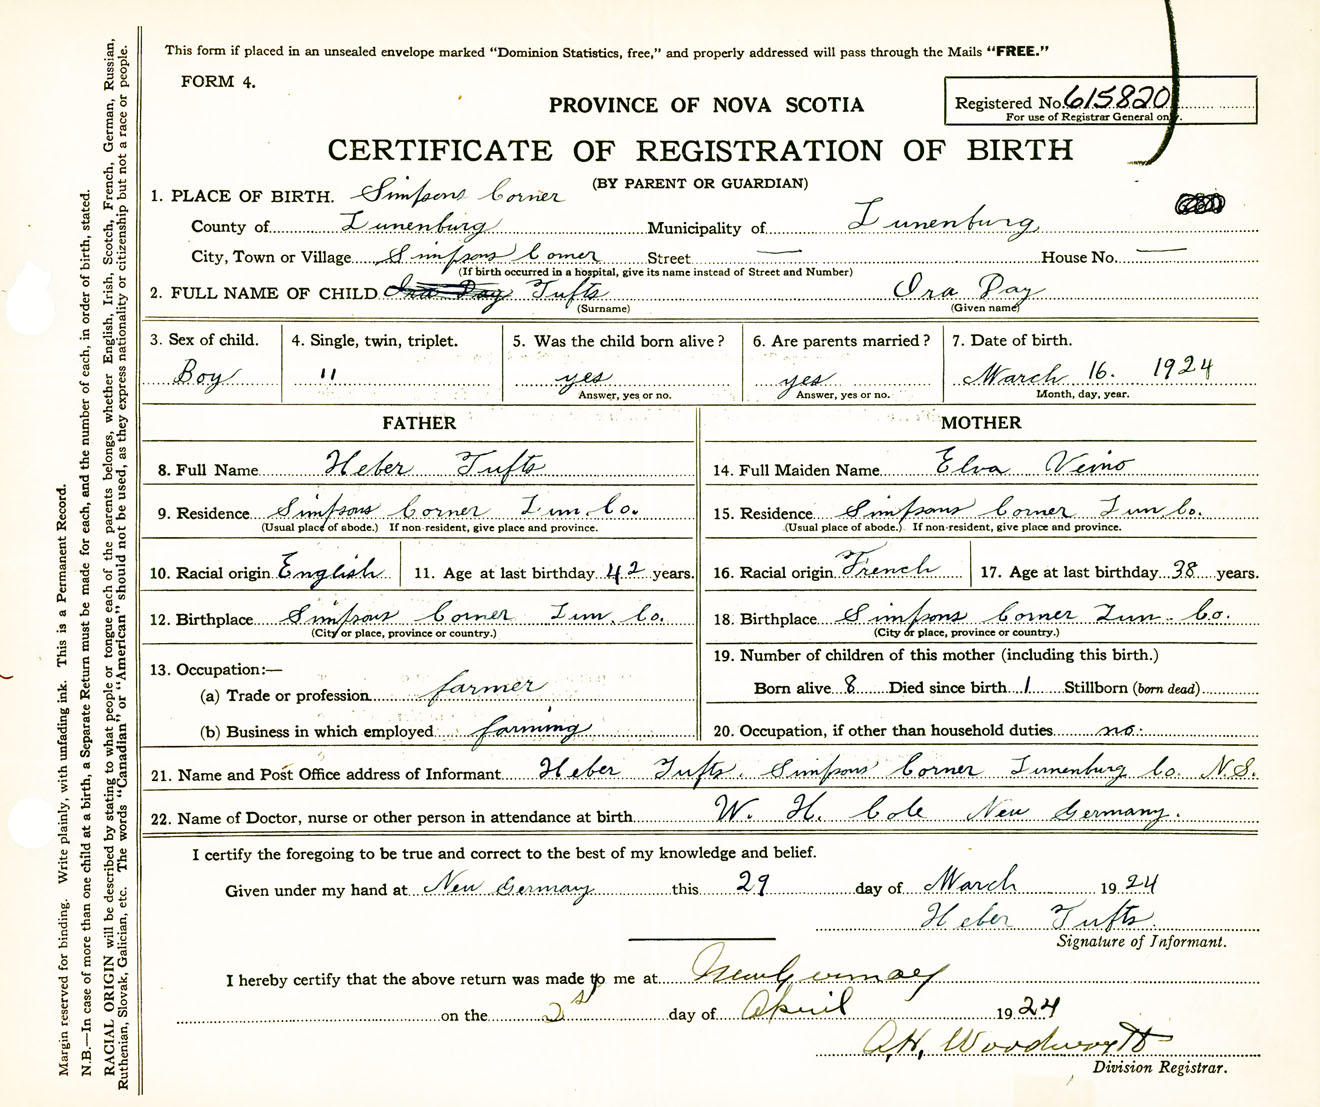 This form if placed in an unsealed envelope marked "Dominion Statistics, free," and properly addressed will pass through the Mails "FREE."
FORM 4.
PROVINCE OF NOVA SCOTIA
Registered No. 615820
For use of Registrar General only.
CERTIFICATE OF REGISTRATION OF BIRTH
(BY PARENT OR GUARDIAN)
1. PLACE OF BIRTH. Simpsons Corner
County of Lunenburg Municipality of Lunenburg
City, Town or Village Simpsons Corner Street — House No. —
(If birth occurred in a hospital, give its name instead of Street and Number)
2. FULL NAME OF CHILD Ora Day Tufts Ora Day
(Surname) (Given name)
3. Sex of child. 4. Single, twin, triplet. 5. Was the child born alive? 6. Are parents married? 7. Date of birth.
Boy " yes yes March 16. 1924
Answer, yes or no. Answer, yes or no. Month, day, year.
FATHER MOTHER
8. Full Name Heber Tufts 14. Full Maiden Name Elva Veino
9. Residence Simpsons Corner Lun. Co. 15. Residence Simpsons Corner Lun Co.
(Usual place of abode.) If non-resident, give place and province. (Usual place of abode.) If non-resident, give place and province.
10. Racial origin English 11. Age at last birthday 42 years. 16. Racial origin French 17. Age at last birthday 38 years.
12. Birthplace Simpsons Corner Lun. Co. 18. Birthplace Simpsons Corner Lun. Co.
(City or place, province or country.) (City or place, province or country.)
13. Occupation:— 19. Number of children of this mother (including this birth.)
(a) Trade or profession farmer Born alive 8 Died since birth 1 Stillborn (born dead)
(b) Business in which employed farming 20. Occupation, if other than household duties no.
21. Name and Post Office address of Informant Heber Tufts. Simpsons Corner Lunenburg Co. N.S.
22. Name of Doctor, nurse or other person in attendance at birth W. H. Cole New Germany.
I certify the foregoing to be true and correct to the best of my knowledge and belief.
Given under my hand at New Germany this 29 day of March 1924
Heber Tufts.
Signature of Informant.
I hereby certify that the above return was made to me at New Germany
on the day of April 1924
A.H. Woodworth
Division Registrar.
Margin reserved for binding. Write plainly, with unfading ink. This is a Permanent Record.
N.B.—In case of more than one child at a birth, a Separate Return must be made for each, and the number of each, in order of birth, stated.
RACIAL ORIGIN will be described by stating to what people or tongue each of the parents belongs, whether English, Irish, Scotch, French, German, Russian,
Ruthenian, Slovak, Galician, etc. The words "Canadian" or "American" should not be used, as they express nationality or citizenship but not a race or people.